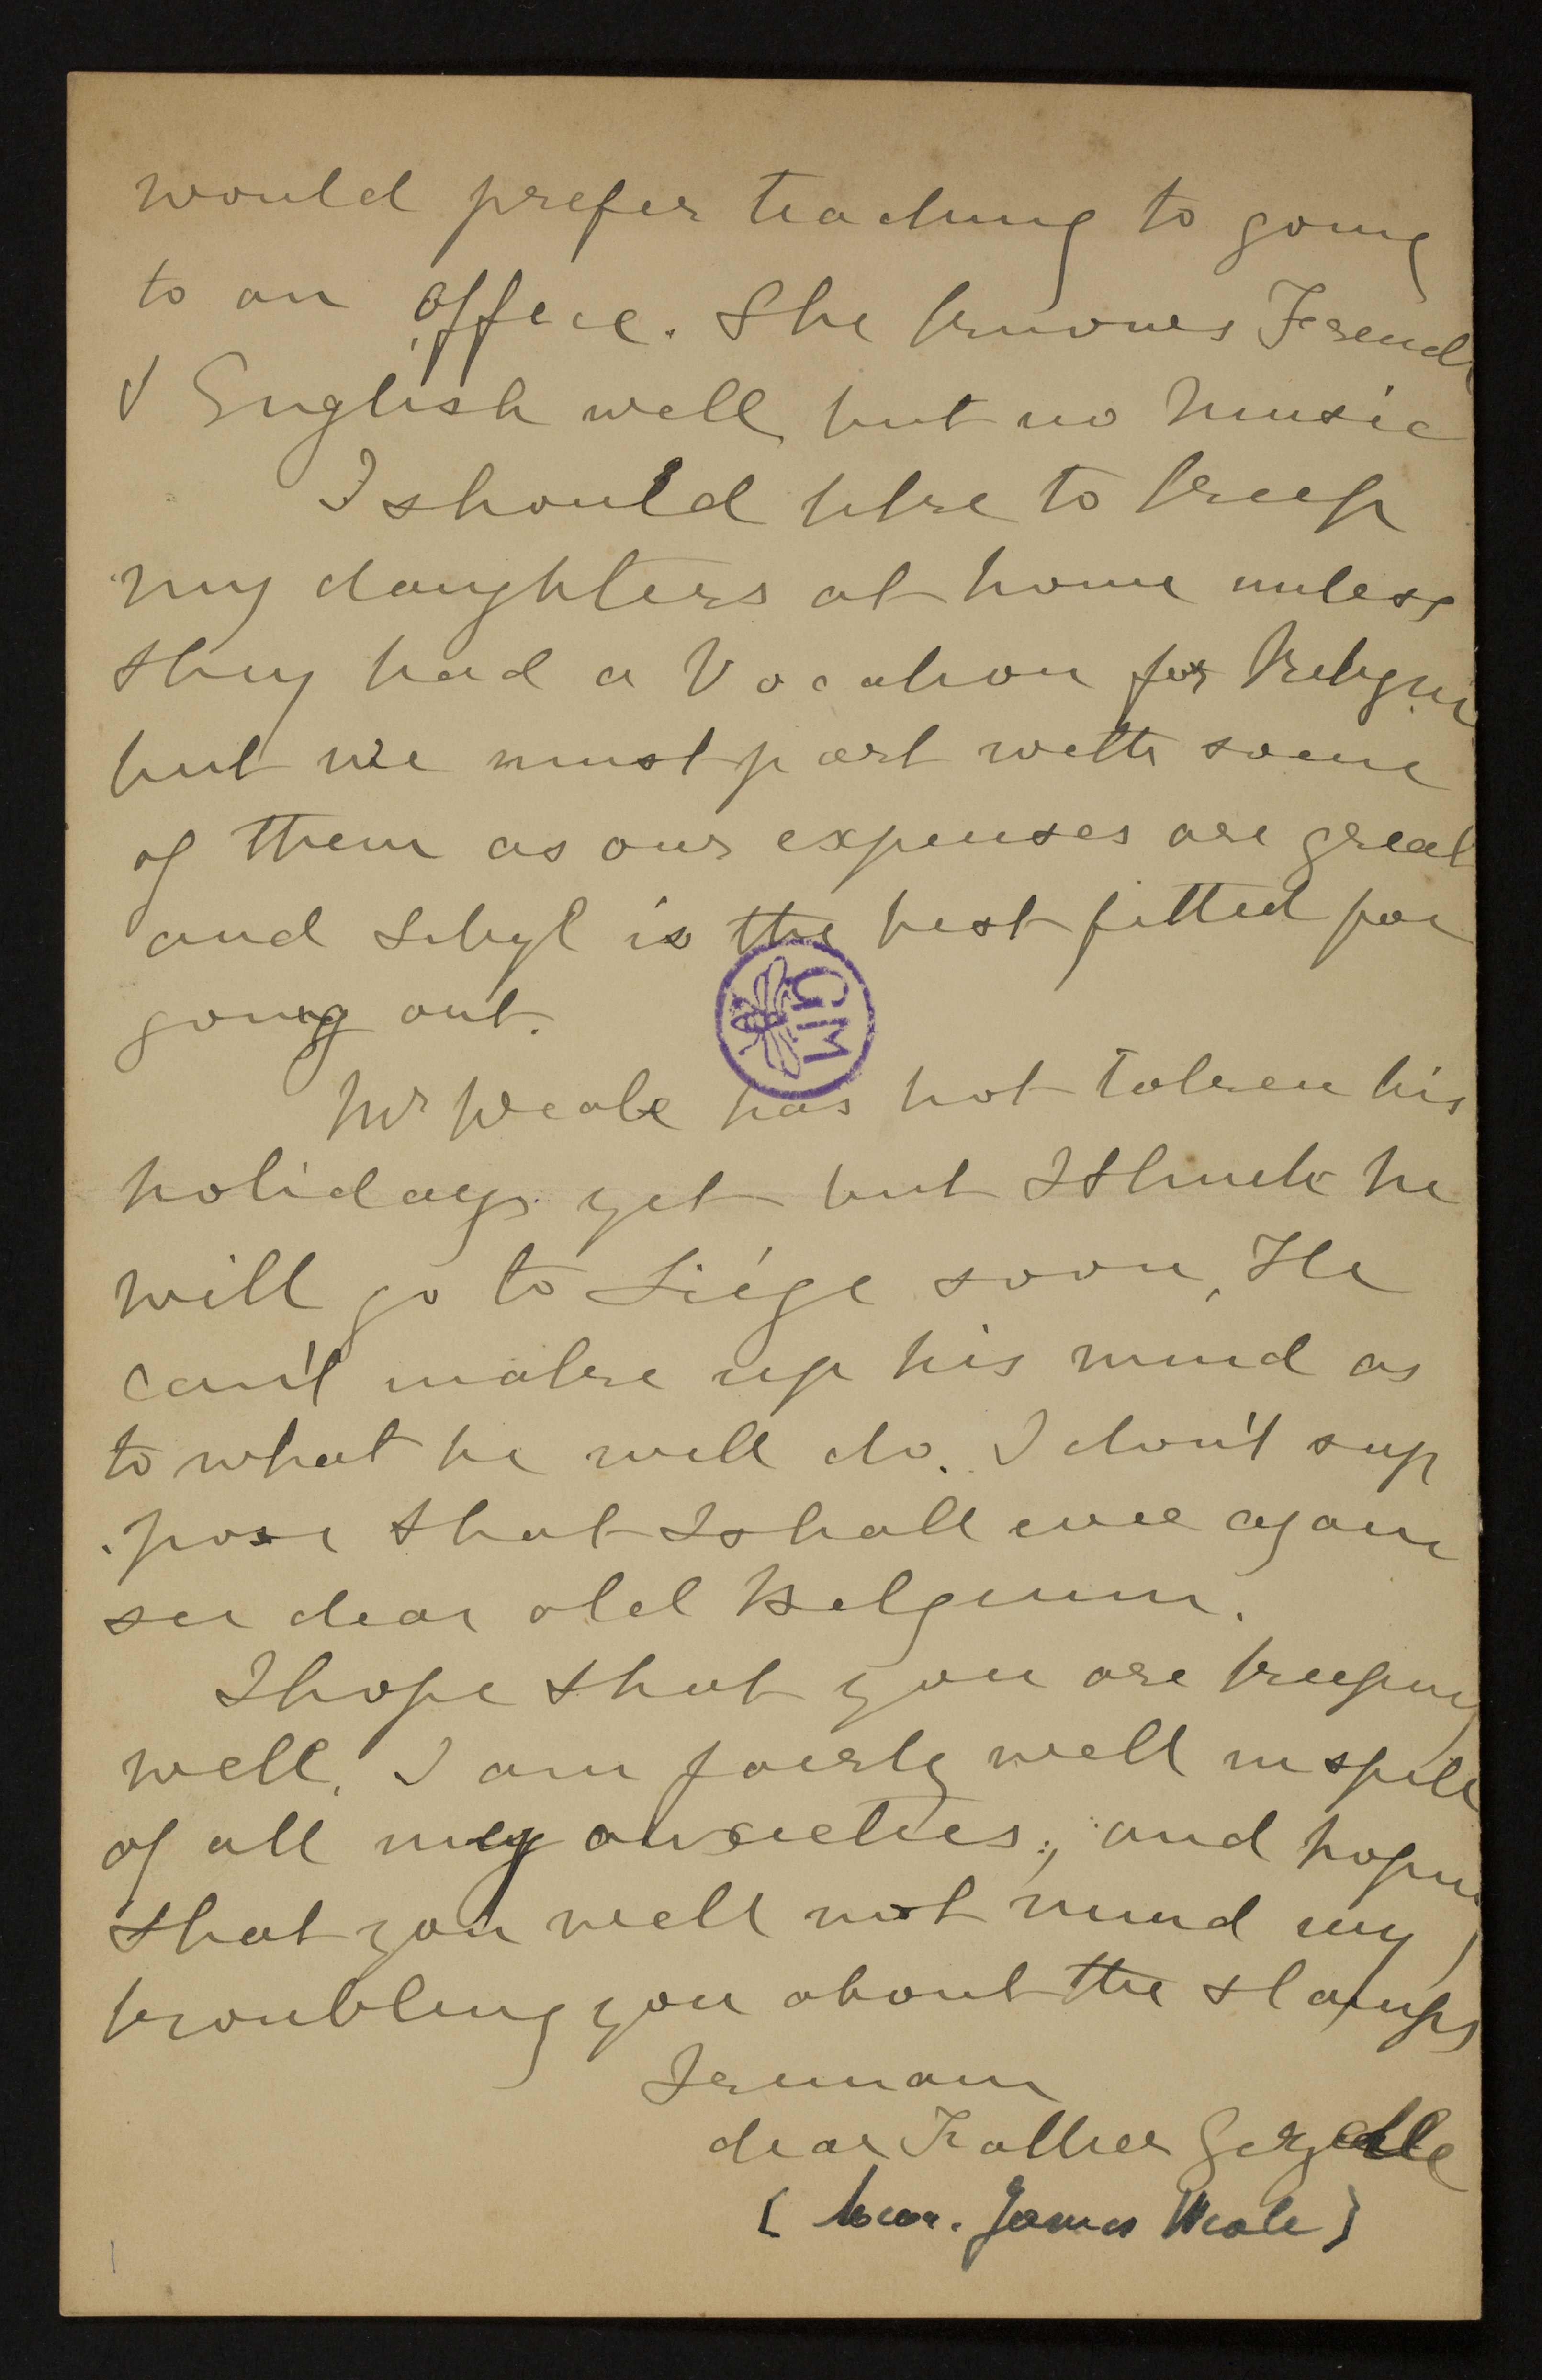 would prefer teaching to going
to an office. She knows French
& English well but no music
I should like to keep
my daughters at home unless
they had a Vocation for Religion
but we must part with some
of them as our expenses are great
and Sibyl is the best fitted for
going out.
GM
Mr Weale has not taken his
holidays yet but I think he
will go to Liége soon, He
can't make up his mind as
to what he will do. I don't sup
pose that I shall ever again
see dear old Belgium.
I hope that you are keeping
well. I am fairly well in spite
of all my anxieties, and hoping
that you will not mind my
troubling you about the stamps
I remain
dear Father Gezelle
James Weale)